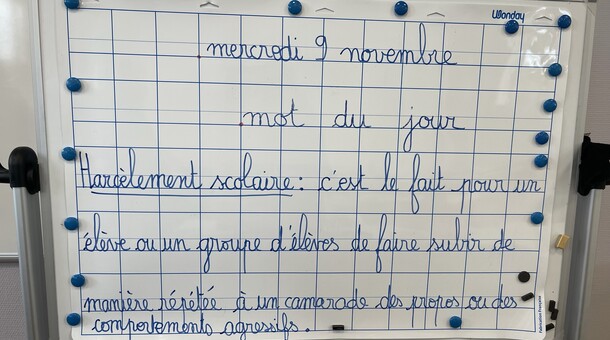 Wonday
mercredi 9 novembre
mot du jour
Harcèlement scolaire : c'est le fait pour un
élève ou un groupe d'élèves de faire subir de
manière répétée à un camarade des propos ou des
comportements agressifs.